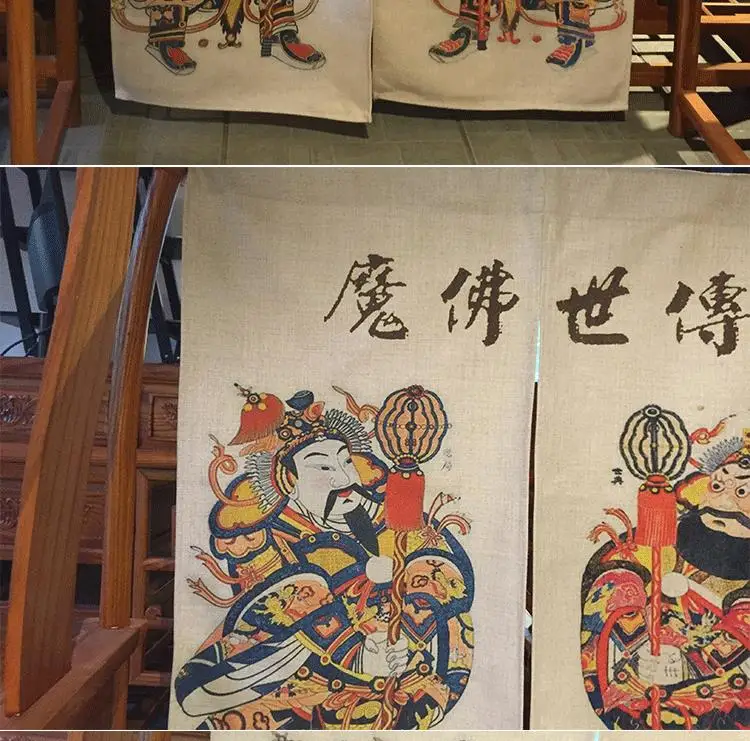 魔佛世傳